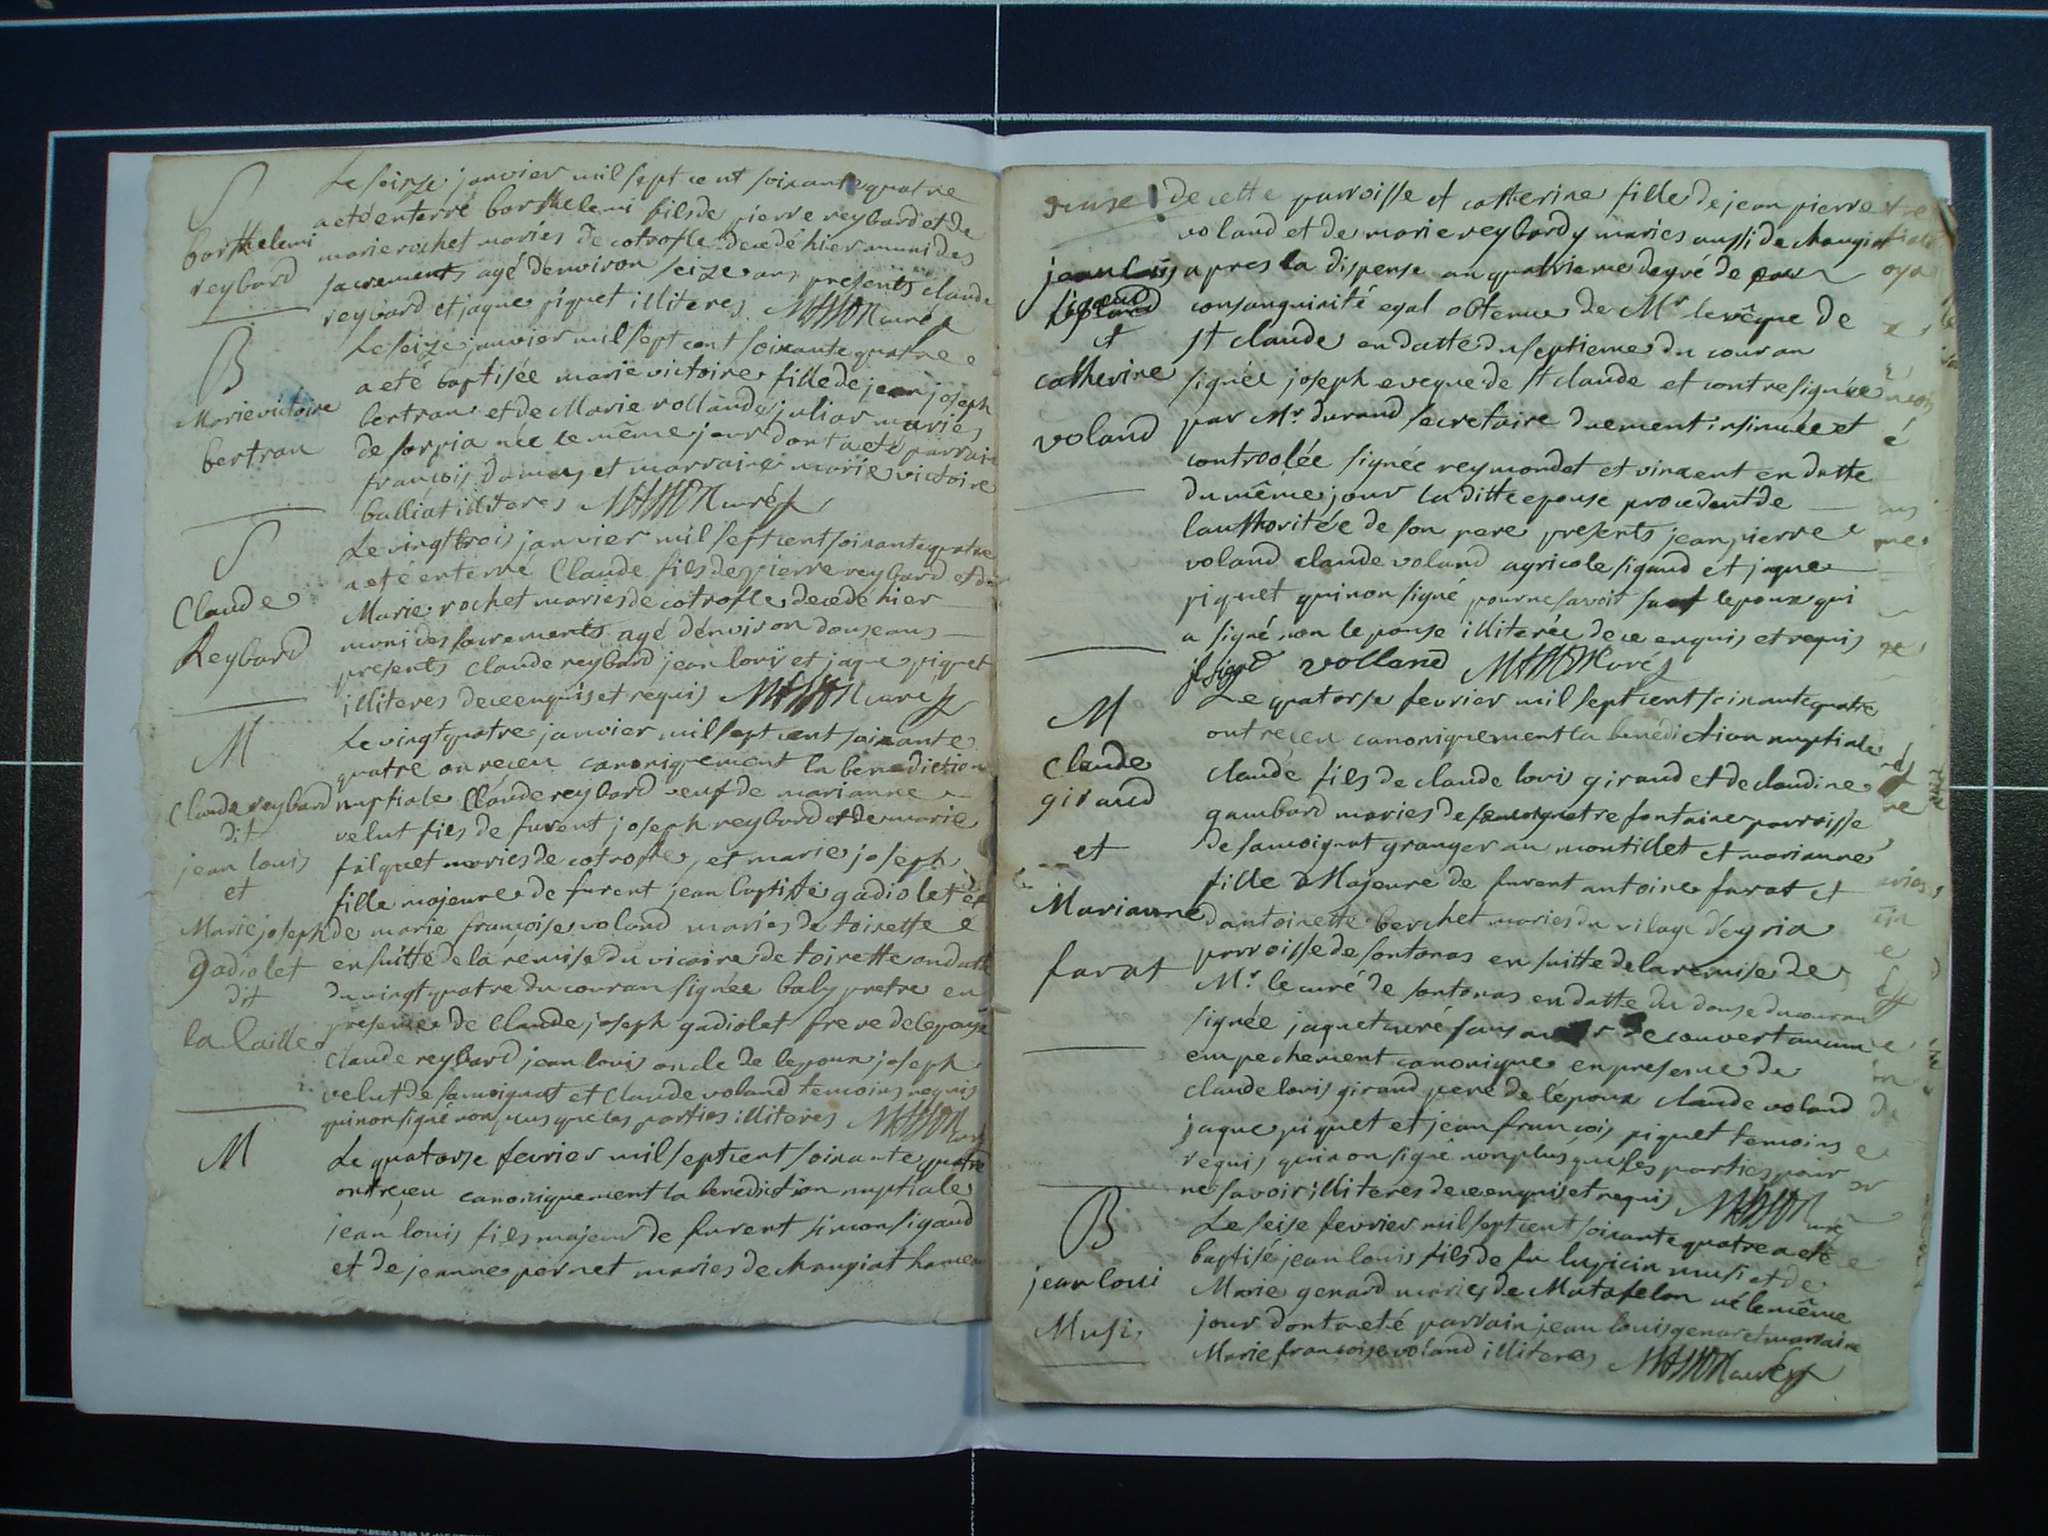 S
barthelemi
reybard
Le seize janvier mil sept cent soixante quatre
a eté enterré barthelemi fils de pierre reybard et de
marie rochet maries de cotrofle decedé hier muni des
sacrements agé denviron seize ans presents claude
reybard et jaque piquet illiteres MASSON curé
B
Marie victoire
bertran
Le seize janvier mil sept cent soixante quatre
a eté baptisée marie victoire fille de jean joseph
bertran et de Marie rollande juliar mariés
de sorpia née le même jour dont a eté parrain
françois damas et marraine marie victoire
balliat illiteres MASSON curé
S
Claude
Reybard
Le vingt trois janvier mil sept cent soixante quatre
a eté enterré Claude fils de pierre reybard et de
Marie rochet maries de cotrofle decedé hier
muni des sacrements agé denviron douse ans
presents claude reybard jean loui et jaque piquet
illiteres de ce enquis et requis MASSON curé
M
Claude reybard
dit
jean louis
et
Marie joseph
gadiolet
dit
la laille
Le vingt quatre janvier mil sept cent soixante
quatre on reçeu canoniquement la benediction
nuptiale Claude reybard veuf de marianne
velut fils de furent joseph reybard et de marie
falquet maries de cotrofle, et marie joseph
fille majeure de furent jean baptiste gadiolet et
de marie françoise voland maries de toirette
en suitte de la remise du vicaire de toirette en datte
du vingt quatre du couran signée baly pretre en
presence de Claude joseph gadiolet frere de lepouse
claude reybard jean louis oncle de lepoux joseph
velut de samoignat et claude voland temoins requis
qui non signé non plus que les parties illiteres MASSON curé
M
Le quatorse fevrier mil sept cent soixante quatre
ont reçeu canoniquement la benediction nuptiale
jean louis fils majeur de furent simon sigaud
et de jeanne pernet maries de chougiat hameau
de cette parroisse et catherine fille de jean pierre
voland et de marie reybard y maries aussi de chaugiat
jean louis
sigaud
et
catherine
voland
apres la dispense au quatrieme degré de
consanguinité egal obtenue de Mr. levêque de
st claude en datte du septieme du couran
signée joseph eveque de st claude et contresignée
par Mr. durand secretaire duement insinuée et
controolée signée reymondet et vincent en datte
du même jour la ditte epouse procedent de
lauthoritée de son pere presents jean pierre
voland claude voland agricole sigaud et jaque
piquet qui non signé pour ne savoir sauf lepoux qui
a signé non lepouse illiterée de ce enquis et requis
jl sigod volland MASSON curé
M
Claude
giraud
et
Marianne
farat
Le quatorse fevrier mil sept cent soixante quatre
ont reçeu canoniquement la benediction nuptiale
claude fils de claude louis giraud et de claudine
gambard maries de fontaine parroisse
de samoignat granger au montillet et marianne
fille Majeure de furent antoine farat et
dantoinette berchet maries du vilage dégria
parroisse de santonas en suitte de la remise de
Mr. le curé de santonas en datte du douse du couran
signée jaquet curé sans avoir decouvert aucun
empechement canonique en presence de
claude louis giraud pere de lépoux claude voland
jaque piquet et jean françois piquet temoins
requis qui non signé non plus que les parties pour
ne savoir illiteres de ce enquis et requis MASSON curé
B
jean loui
Musi
Le seise fevrier mil sept cent soixante quatre a eté
baptisé jean louis fils de fu lupicin musi et de
Marie genard maries de Matafelon né le même
jour dont a eté parrain jean louis genar et marraine
Marie françoise voland illiteres MASSON curé